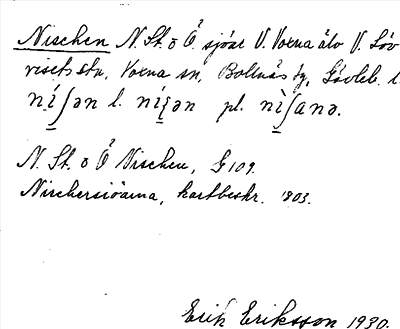 Nischen N. St. o Ö sjöar V. Voxna älv V. Löv
viset stn, Voxna sn, Bollnäs tg, Gävleb. l.
ní∫ən l. níʂən pl. nì∫anə.
N. St. o Ö Nischen, G 109.
Nischersjöarna, kartbeskr. 1803.
Erik Eriksson 1930.